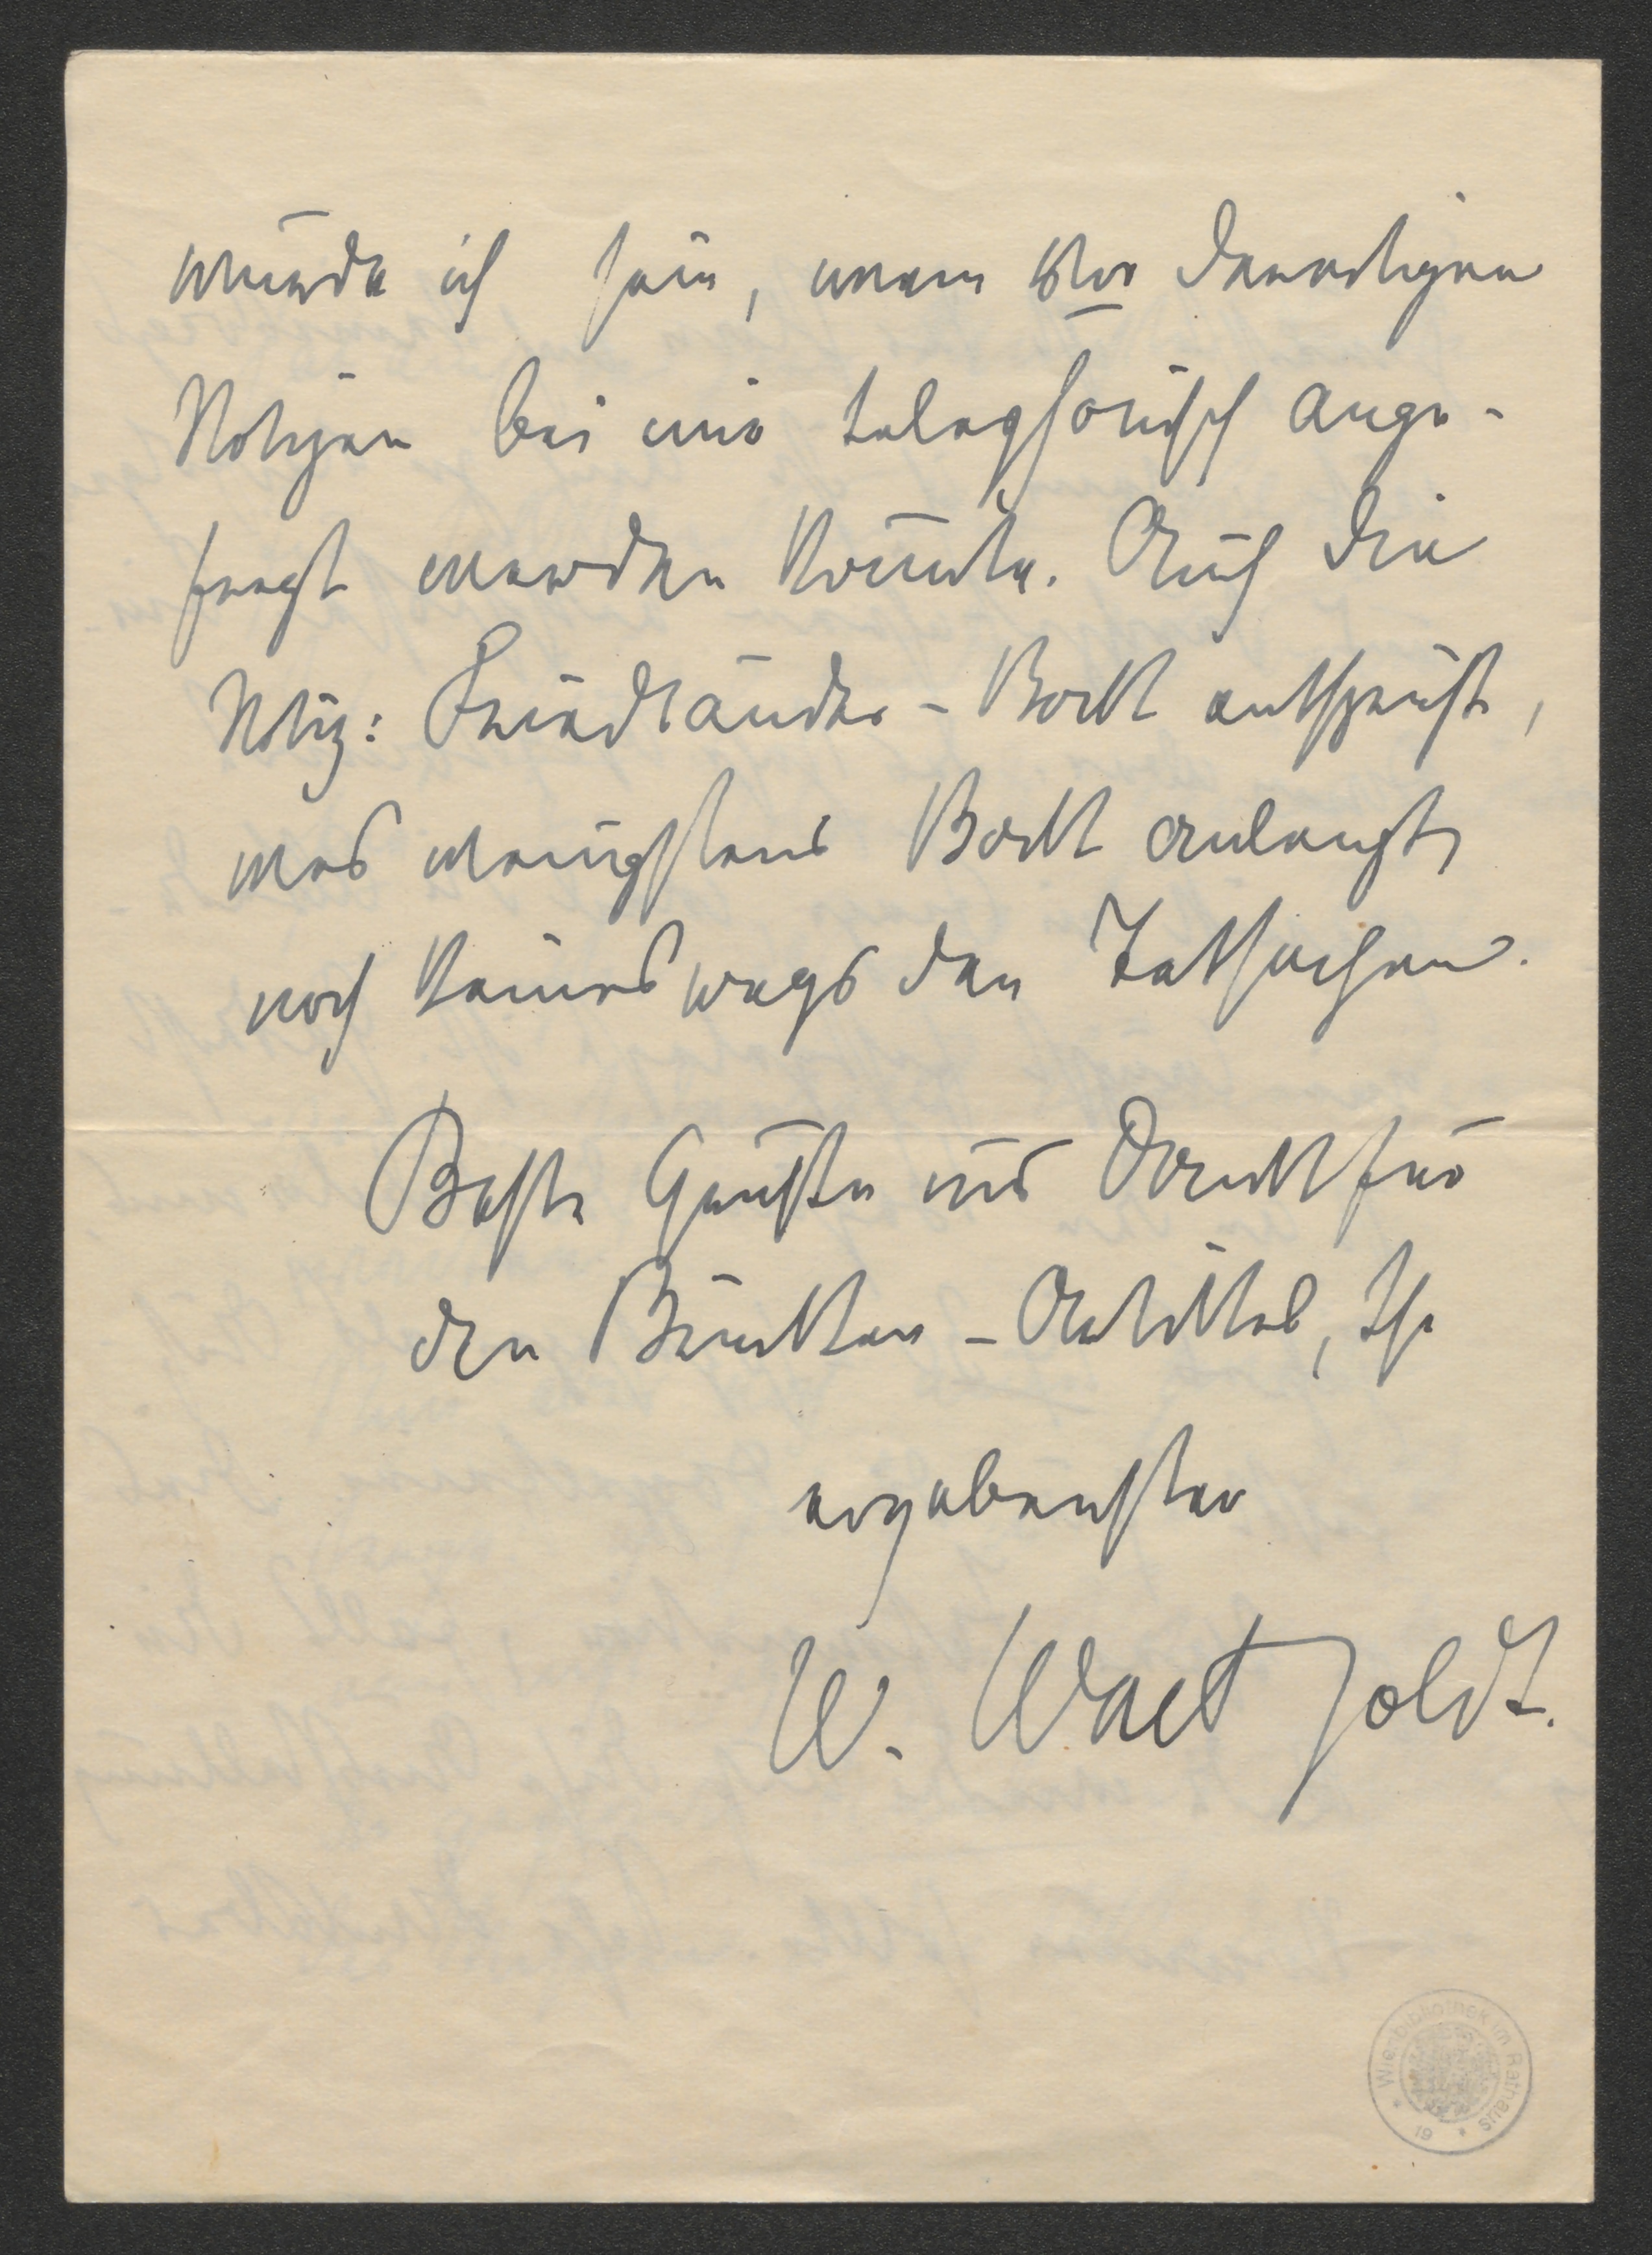 würde ich sein, wenn vor derartigen
Notizen bei mir telephonisch ange-
fragt werden könnte. Auch die
Notiz: Friedländer-Bock entspricht,
was wenigstens Bock anlangt,
noch keineswegs den Tatsachen.
Beste Grüsse und Dank für
den Brücken-Artikel, Ihr
ergebenster
W. Waetzoldt.
Wienbibliothek im Rathaus